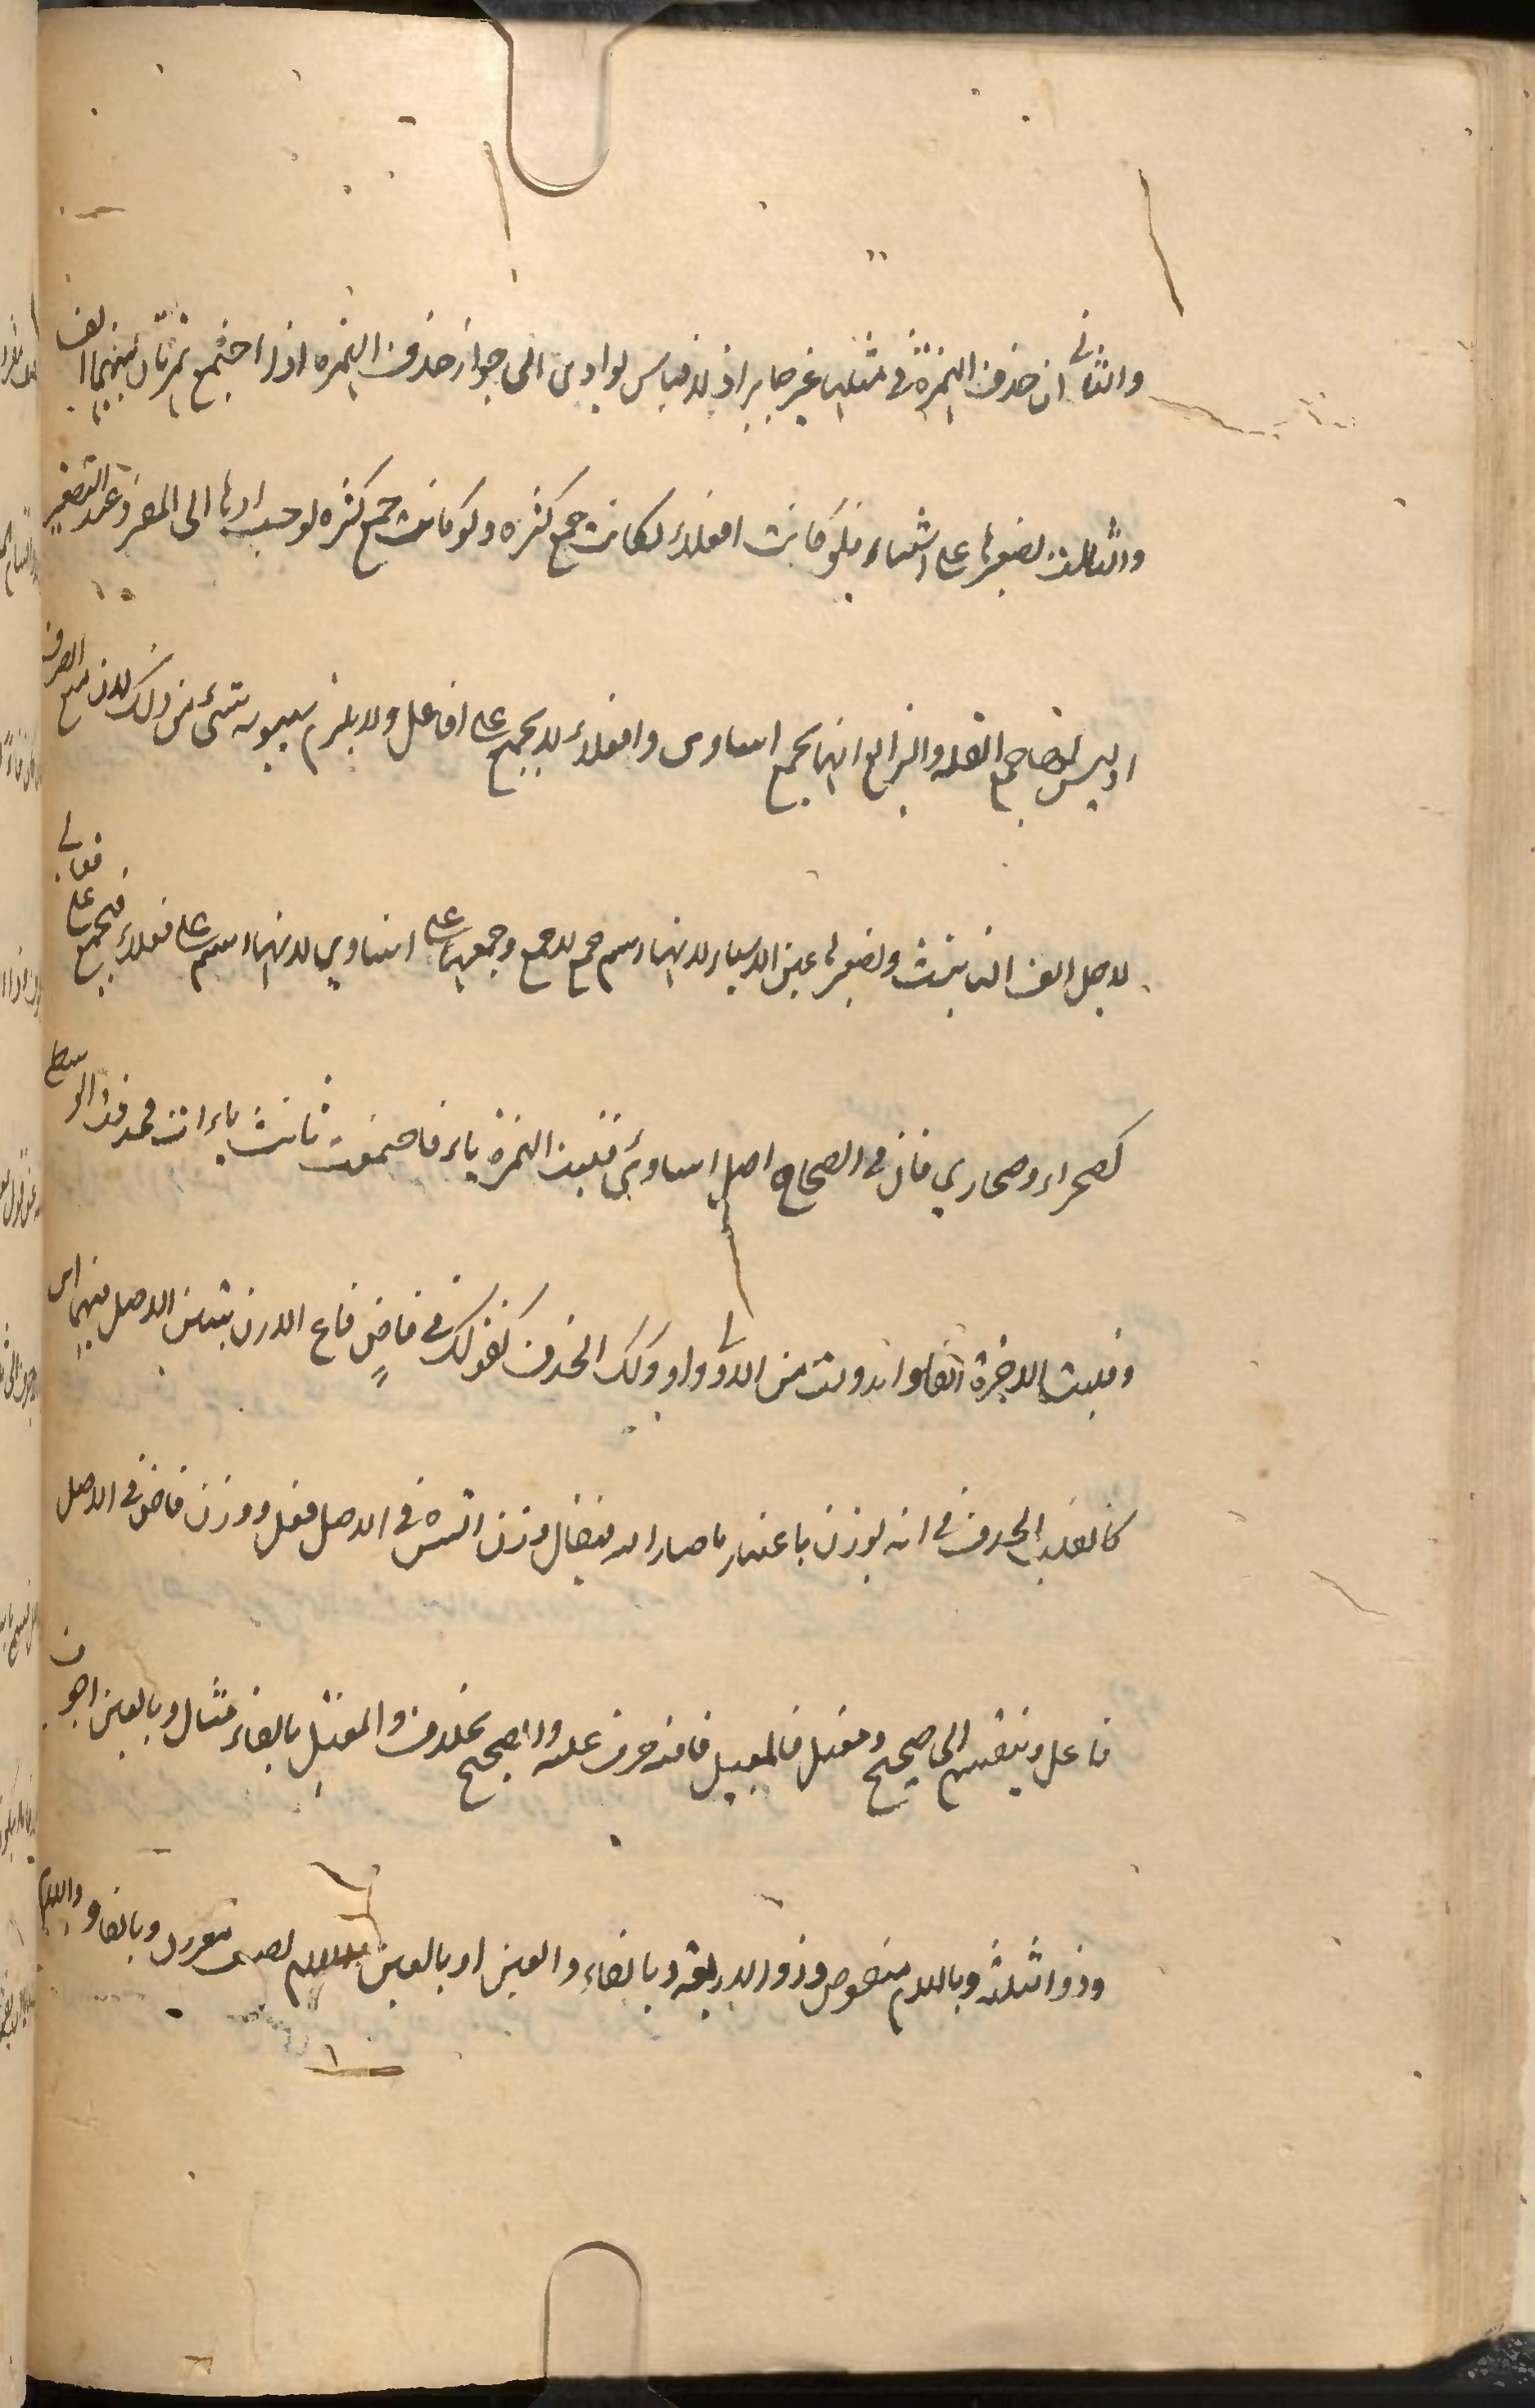 والثانى ان حذف الهمزة فى مثلها غير جايز اذ لا قياس يوادى الى جواز حذف الهمزه اذا اجتمع همزتان بينهما الف
والثالث تصغيرها على اشياء فلو كانت افعلاء لكانت جمع كثره ولو كانت جمع كثره لوجب ردها الى المفرد عند التصغير
اذ ليس لها جمع القله والرابع انها يجمع اساوى وافعلاء لا يجمع على افاعل ولا يلزم سيبويه شئ من ذلك لان منع الصرف
لاجل الف التانيث وتصغيرها على اشياء لانها اسم جمع لا جمع وجمعها على اشاوي لانها اسم على فعلاء فيجمع على فعالى
كصحراء وصحاري قال فى الصحاح اصل اساوى اساوئ قلبت الهمزة ياء فاجتمعت ثلاث ياءات فحذفت الوسطى
وقلبت الاخيرة الفا وابدلت من الاولى واو وكذلك الحذف كقولك فى قاضٍ فاع الا ان يتبين الاصل فيهما اى
كالقلب الحذف فى انه يوزن باعتبار ما صار اليه فيقال وزن ايس فى الاصل فعل ووزن قاض فى الاصل
فاعل وينقسم الى صحيح ومعتل فالمعتل ما فيه حرف علة والصحيح بخلافه والمعتل بالفاء مثال وبالعين اجوف
وذو الثلثه وباللام منقوص وذو الاربعة وبالفاء والعين او بالعين واللام لفيف مقرون وبالفاء واللام